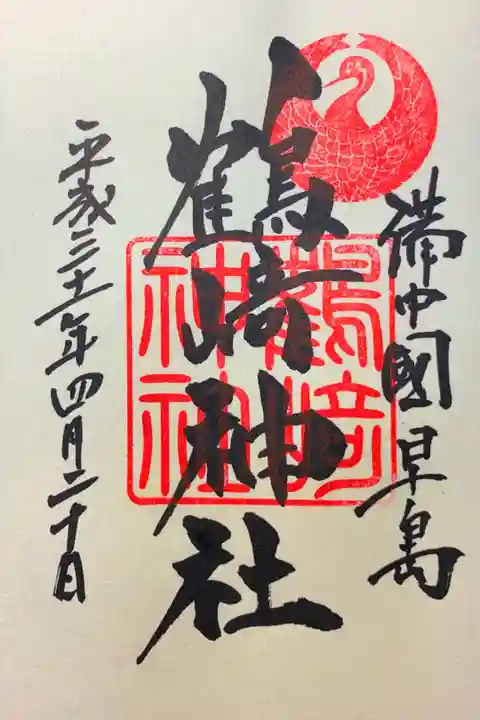 備中國早島
鶴崎神社
鶴崎神社
平成三十一年四月二十日